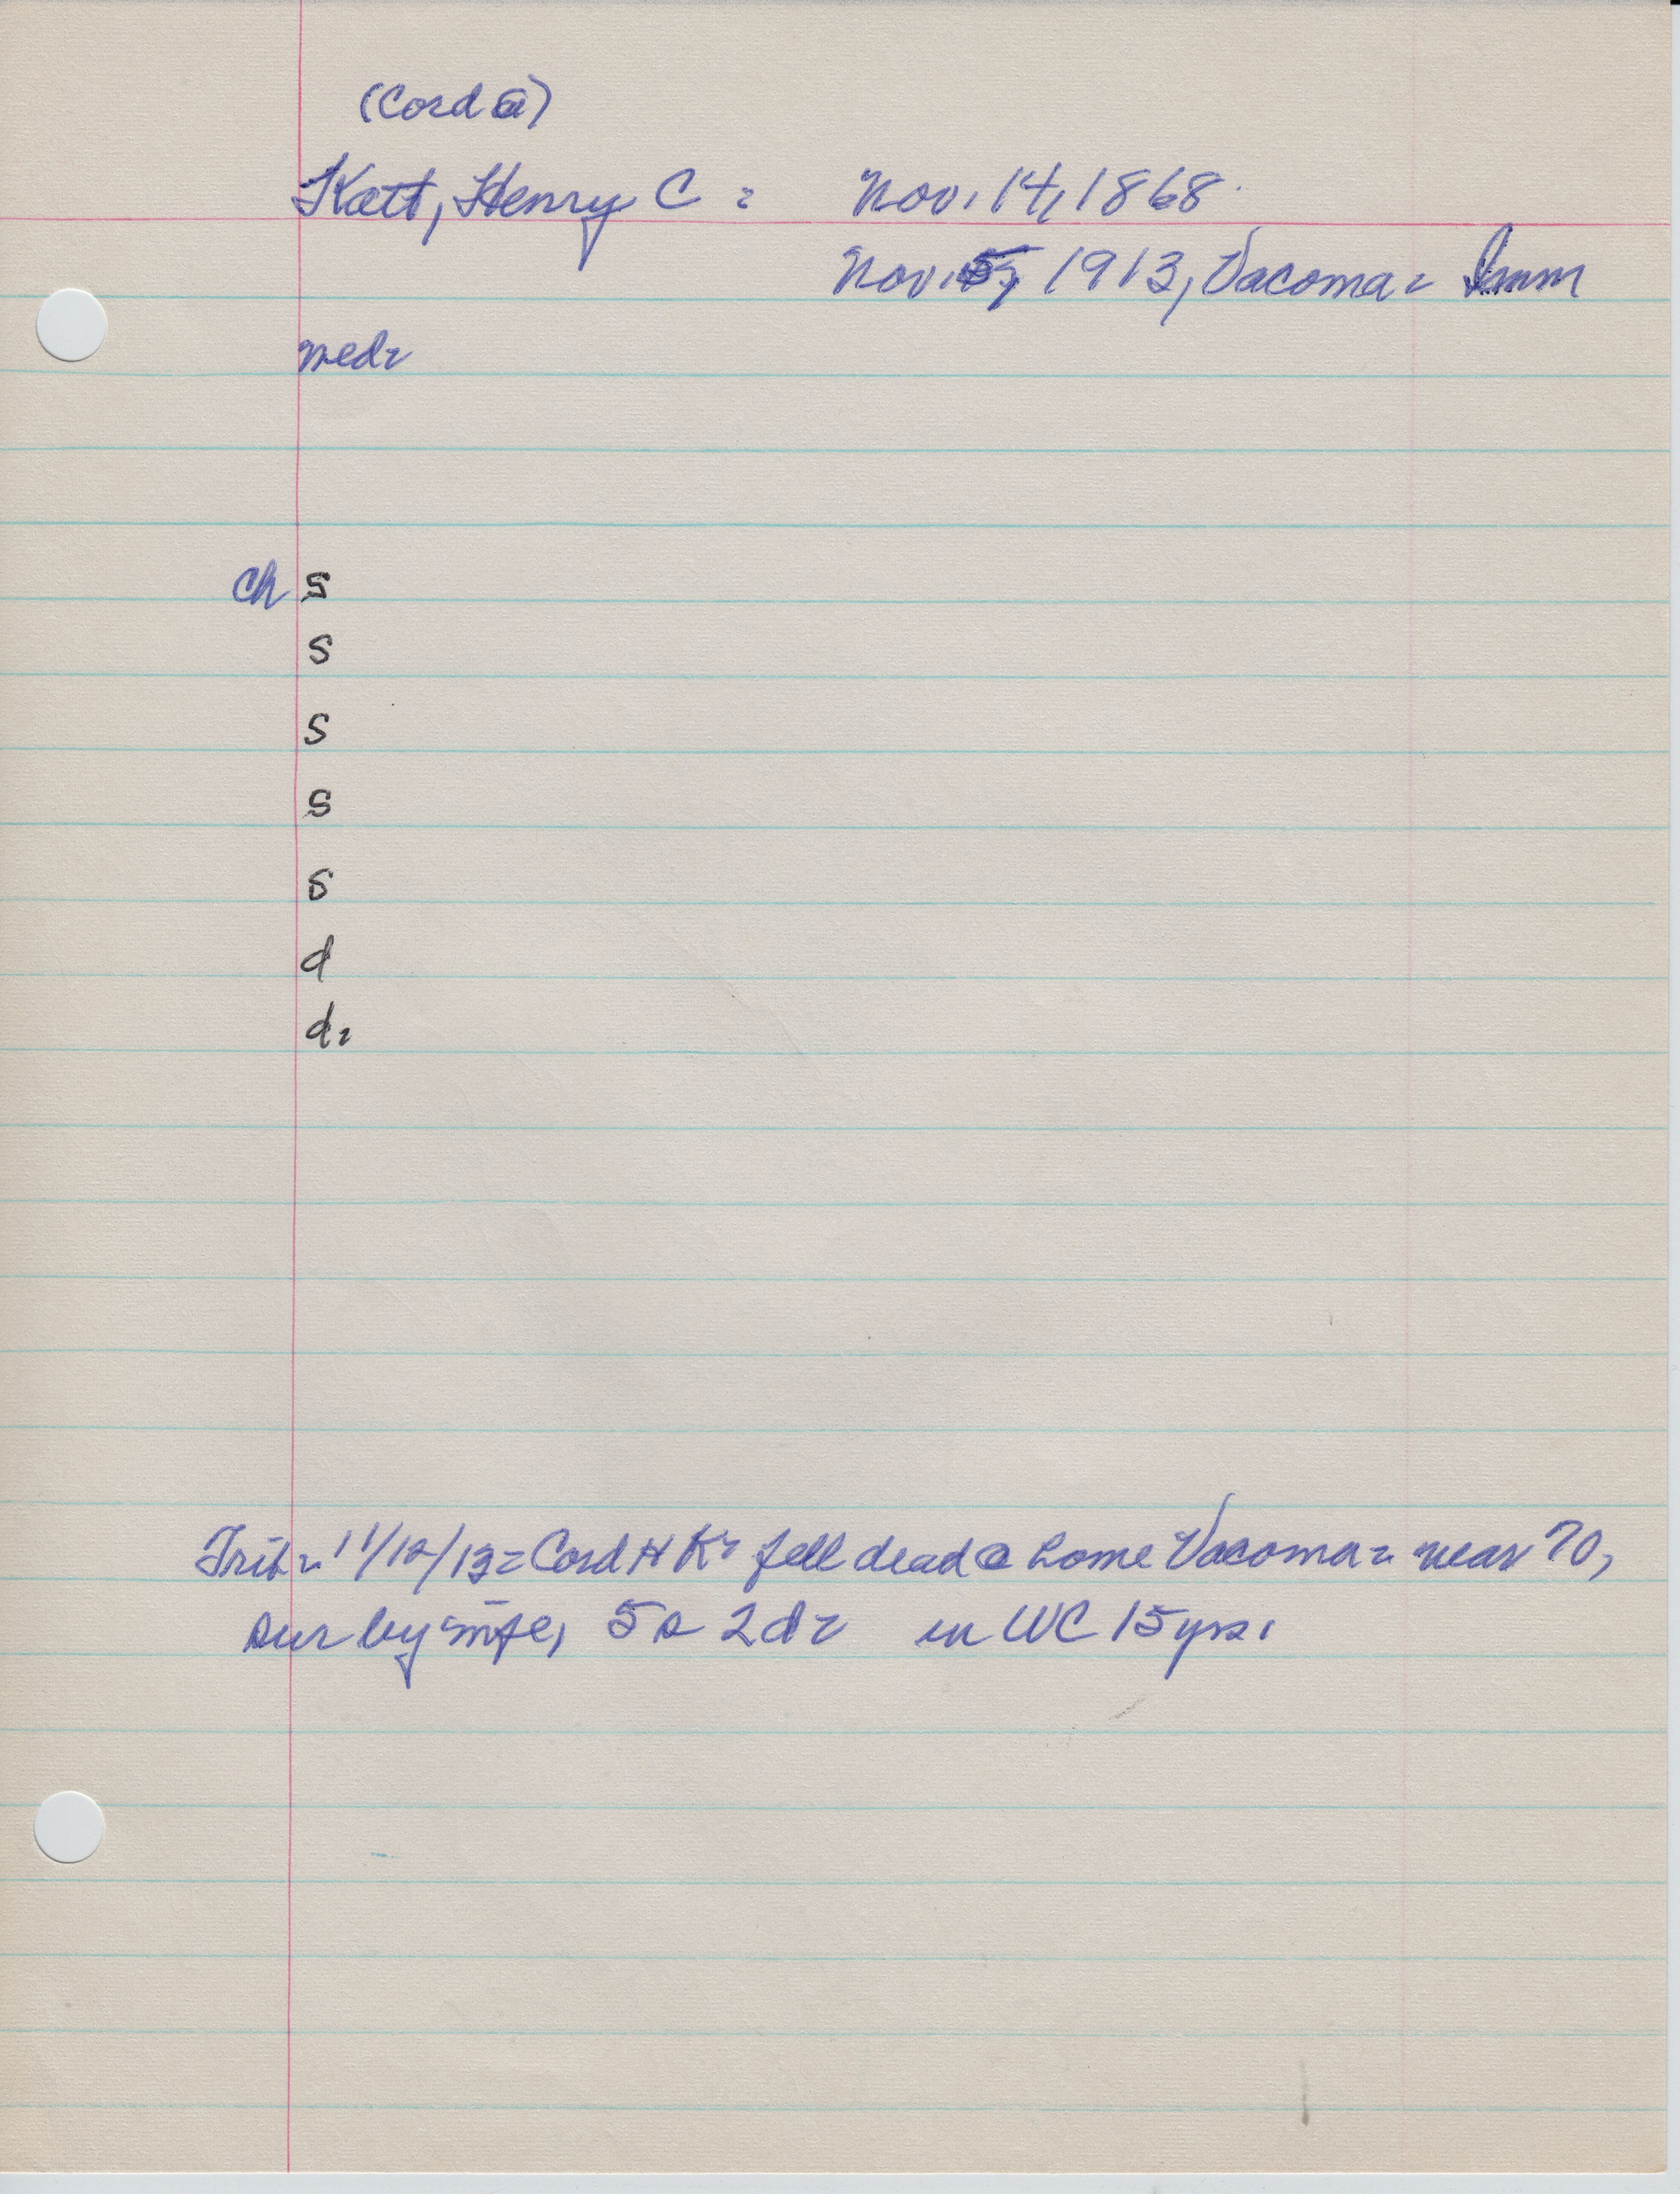 (Cord @)
Katt, Henry C = Nov. 14, 1868.
Nov. 5, 1913, Vacoma = Imm
wed=
ch s
s
s
s
s
d
d=
Trib = 11/12/13 = Cord H K= fell dead @ home Vacoma = near 70,
sur by wife, 5 s 2 d = in WC 15 yrs.